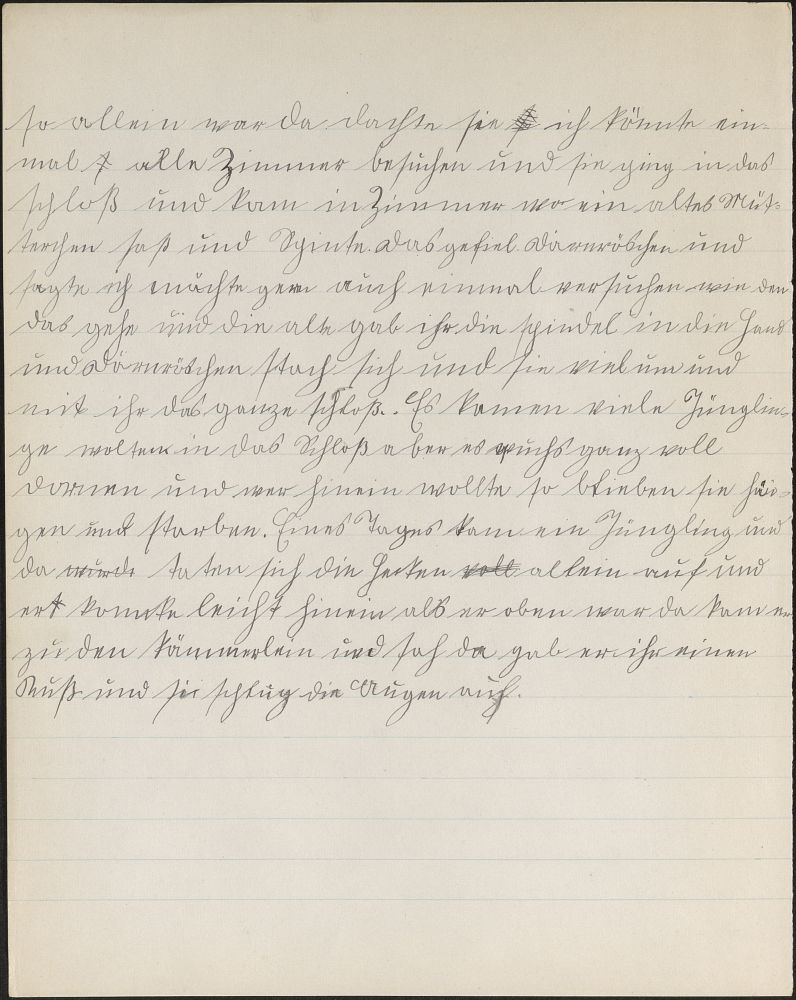 so allein war da dachte sie ich könnte ein-
mal alle Zimmer besuchen und sie ging in das
schloß und kam in Zimmer wo ein altes Müt-
terchen saß und Spinte. Das gefiel Därnröschen und
sagte ich mächte gern auch einmal versuchen wie den
das gehe und die alte gab ihr die spindel in die Hand
und Dörnröschen stach sich und sie viel um und
mit ihr das ganze schloß. Es kamen viele Jünglin-
ge wolten in das Schloß aber es wuchs ganz voll
Dornen und wer hinein wollte so blieben sie hän-
gen und starben. Eines Tages kam ein Jüngling und
da wurde taten sich die Hecken voll allein auf und
er konnte leicht hinein als er oben war da kam er
zu den kämmerlein und sah da gab er ihr einen
Kuß und sie schlug die Augen auf.